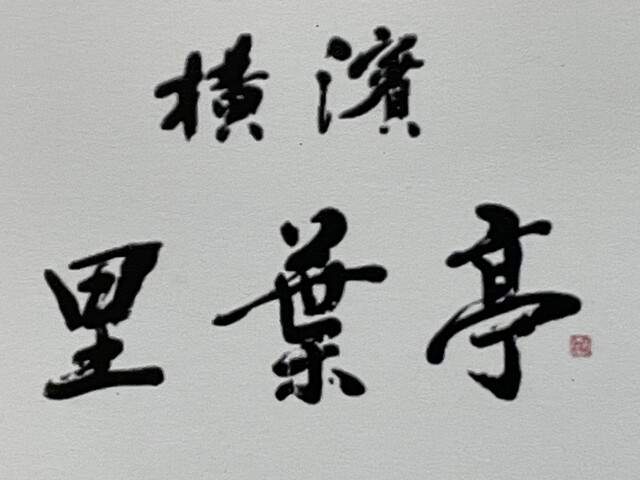 横濱
里葉亭